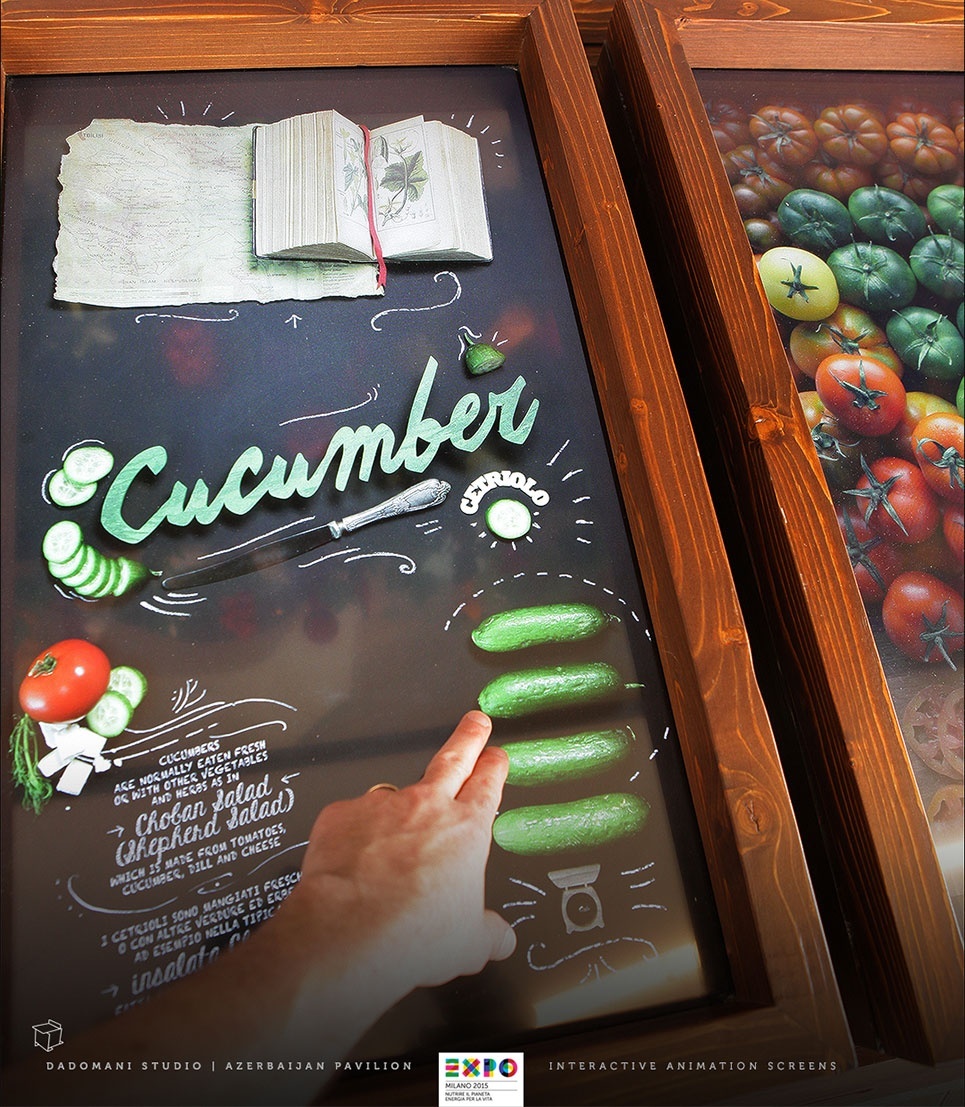 TBILISI
Cucumber
CETRIOLO
CUCUMBERS
ARE NORMALLY EATEN FRESH
OR WITH OTHER VEGETABLES
AND HERBS AS IN
Choban Salad
(Shepherd Salad)
WHICH IS MADE FROM TOMATOES,
CUCUMBER, DILL AND CHEESE
I CETRIOLI SONO MANGIATI
O CON ALTRE VERDURE ED
AD ESEMPIO NELLA
insalata
DADOMANI STUDIO | AZERBAIJAN PAVILION
EXPO
MILANO 2015
NUTRIRE IL PIANETA
ENERGIA PER LA VITA
INTERACTIVE ANIMATION SCREENS